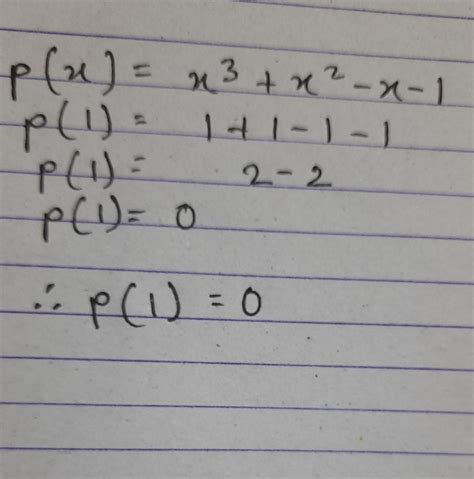 p(x) = x³ + x² - x - 1
p(1) = 1 + 1 - 1 - 1
p(1) = 2 - 2
p(1) = 0
∴ p(1) = 0